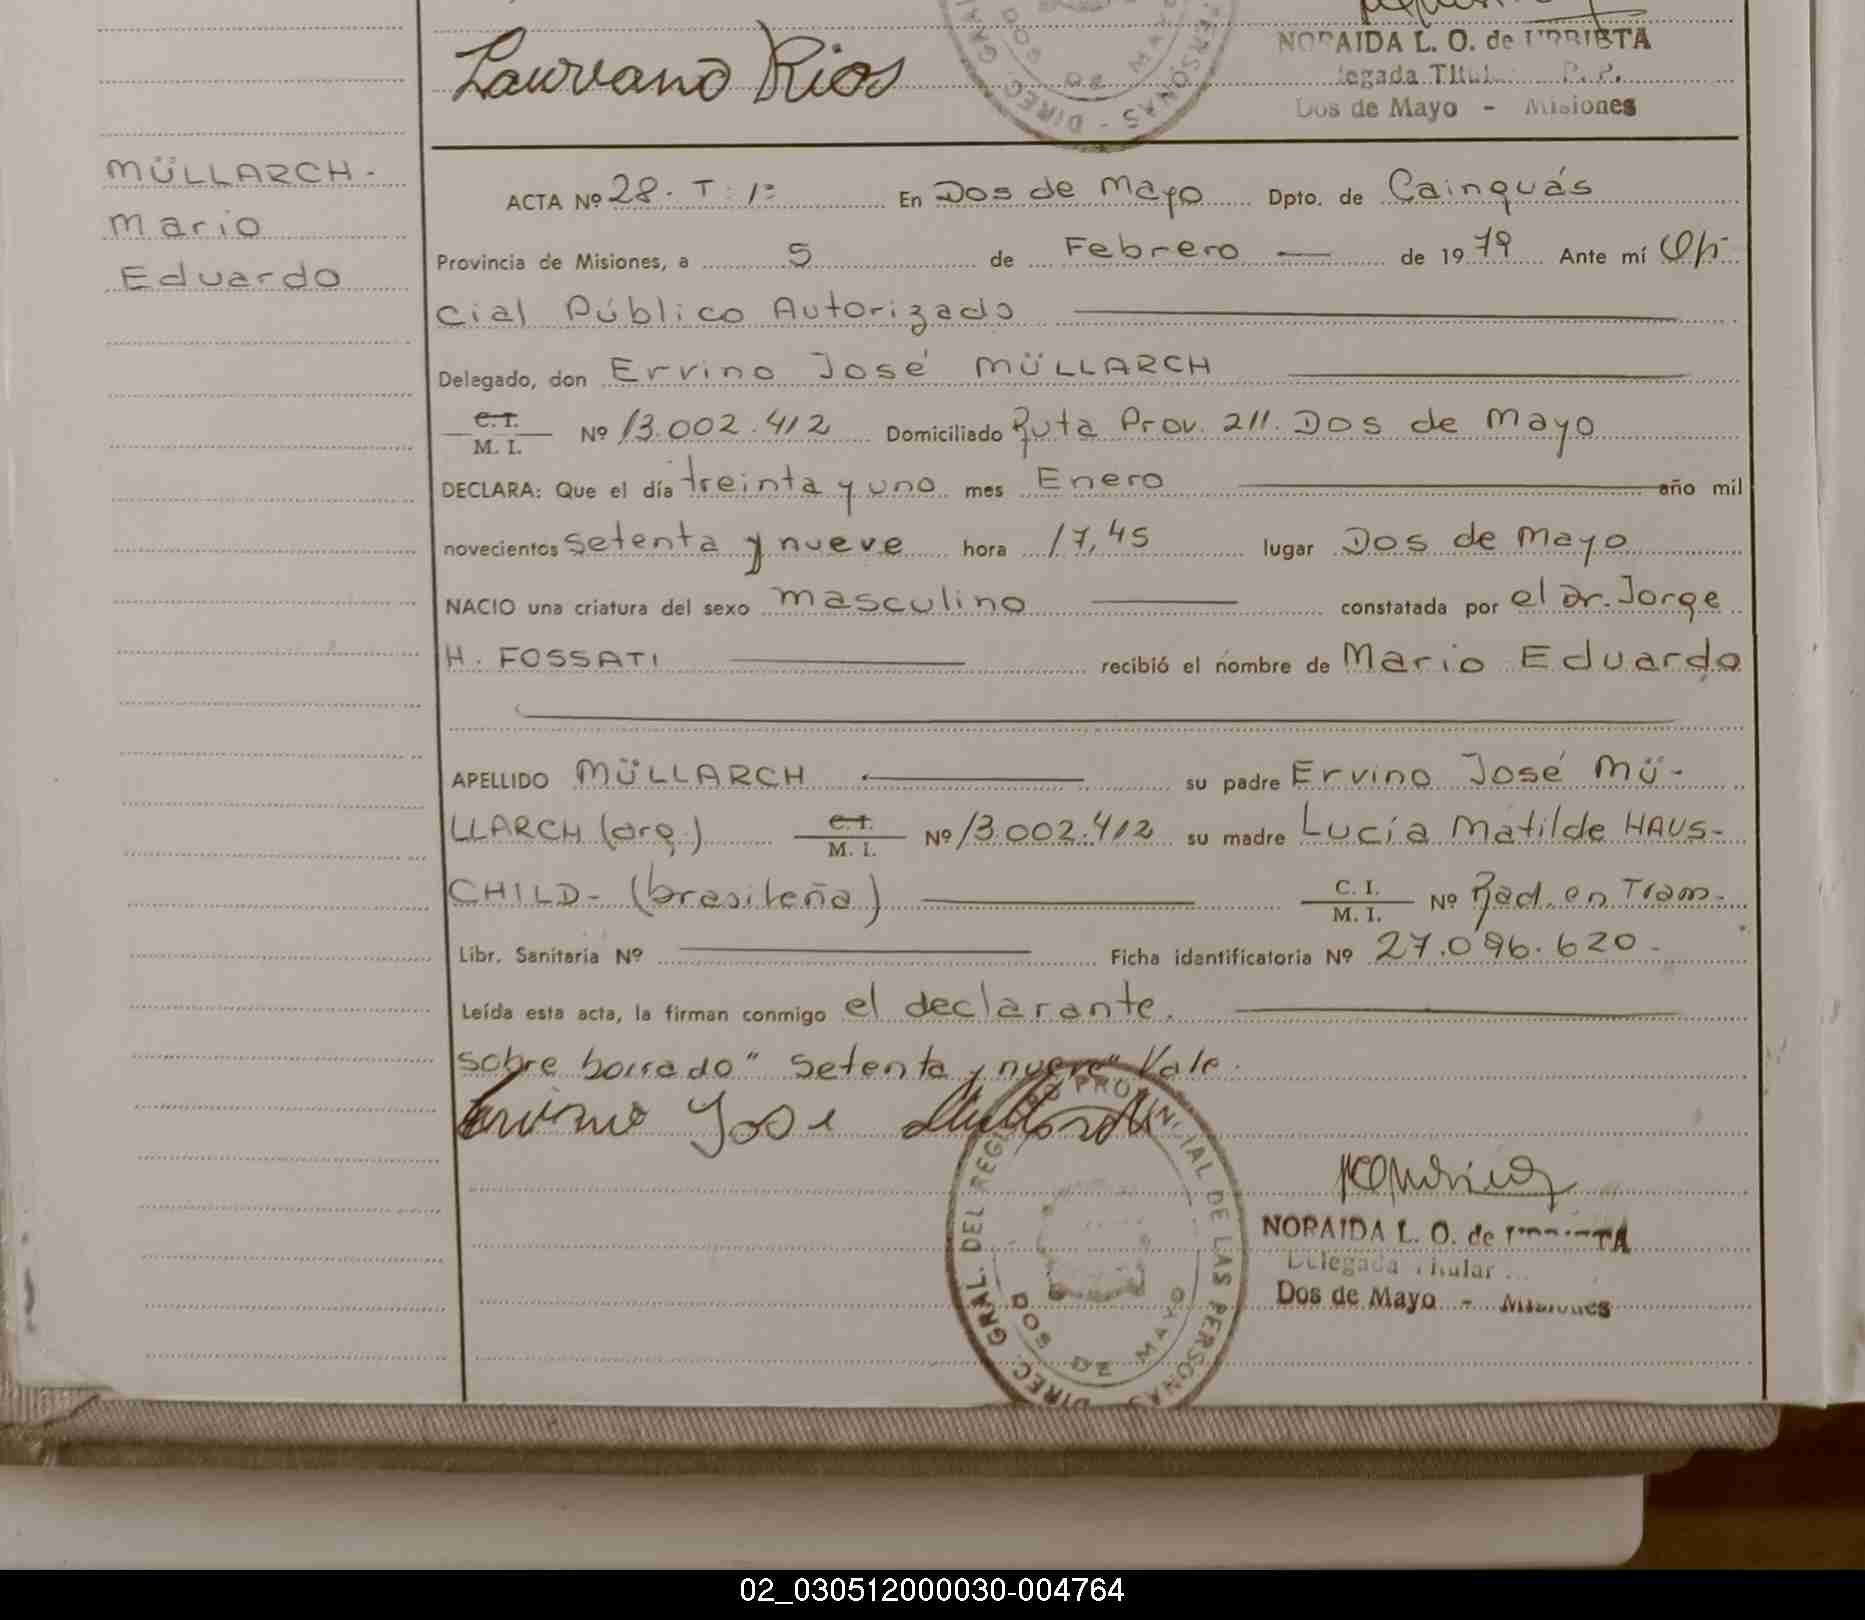 Laureano Rios
NORAIDA L. O. de URRIETA
Delegada Titular
Dos de Mayo - Misiones
MÜLLARCH-
Mario
Eduardo
ACTA Nº 28. T: 1º En Dos de Mayo Dpto. de Cainguás
Provincia de Misiones, a 5 de Febrero de 1979 Ante mí Ofi-
cial Público Autorizado
Delegado, don Ervino José MÜLLARCH
C.I.
M. I. Nº 13.002.412 Domiciliado Ruta Prov. 211. Dos de Mayo
DECLARA: Que el día treinta y uno mes Enero año mil
novecientos setenta y nueve hora 17,45 lugar Dos de Mayo
NACIO una criatura del sexo masculino constatada por el Dr. Jorge
H. FOSSATI recibió el nombre de Mario Eduardo
APELLIDO MÜLLARCH su padre Ervino José MÜ-
LLARCH (arg.) C.I. M. I. Nº 13.002.412 su madre Lucía Matilde HAUS-
CHILD- (brasileña) C. I. M. I. Nº Rad. en Tram.
Libr. Sanitaria Nº Ficha identificatoria Nº 27.096.620.-
Leída esta acta, la firman conmigo el declarante.
sobre borrado "setenta y nueve" Vale.
Ervino José Müllarch
DIREC. GRAL. DEL REGISTRO PROVINCIAL DE LAS PERSONAS
DOS DE MAYO
NORAIDA L. O. de URRIETA
Delegada Titular
Dos de Mayo - Misiones
02_030512000030-004764